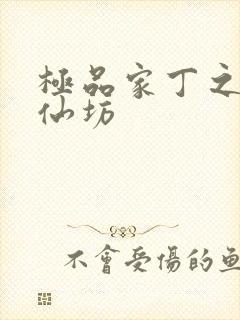 極品家丁之
仙坊
不會受傷的魚